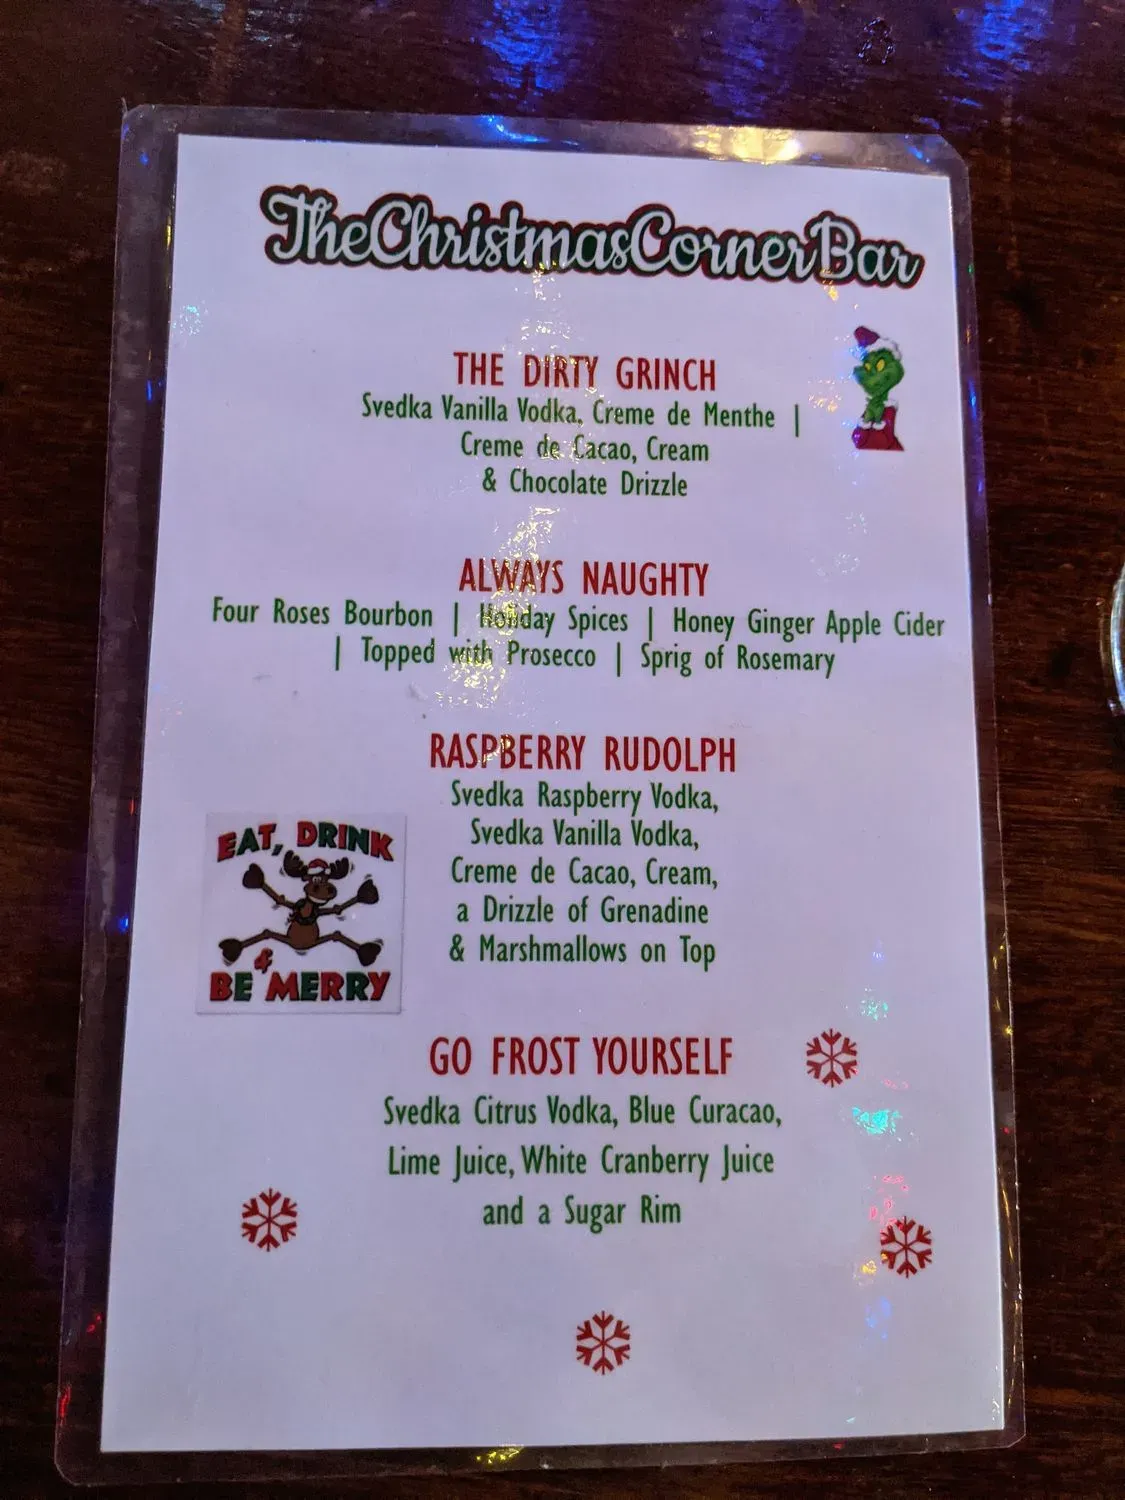 TheChristmasCornerBar
THE DIRTY GRINCH
Svedka Vanilla Vodka, Creme de Menthe |
Creme de Cacao, Cream
& Chocolate Drizzle
ALWAYS NAUGHTY
Four Roses Bourbon | Holiday Spices | Honey Ginger Apple Cider
| Topped with Prosecco | Sprig of Rosemary
RASPBERRY RUDOLPH
Svedka Raspberry Vodka,
Svedka Vanilla Vodka,
Creme de Cacao, Cream,
a Drizzle of Grenadine
& Marshmallows on Top
EAT, DRINK
&
BE MERRY
GO FROST YOURSELF
Svedka Citrus Vodka, Blue Curacao,
Lime Juice, White Cranberry Juice
and a Sugar Rim